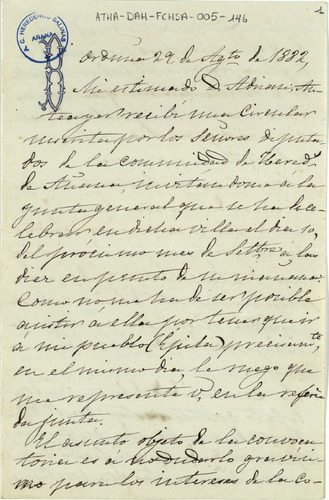 ATHA-DAH-FCHSA-005-146
1
C. HEREDEROS SALINAS
AÑANA
Orduña 29 de Agto de 1882,
Mi estimado D Adrian: An
teayer recibi una Circular
suscrita por los Señores diputa
dos de la Comunidad de Hered.
de Añana invitandome a la
Junta general que se ha de ce
lebrar en dicha villa el dia 10,
del próximo mes de Setbre a las
diez en punto de su mañana.
Como no me ha de ser posible
asistir á ella por tener que ir
a mi pueblo (Espita) precisamte
en el mismo dia le ruego que
me represente V, en la referi
da junta.
El asunto objeto de la convoca
toria es á no dudarlo gravisi
mo para los intereses de la Co-